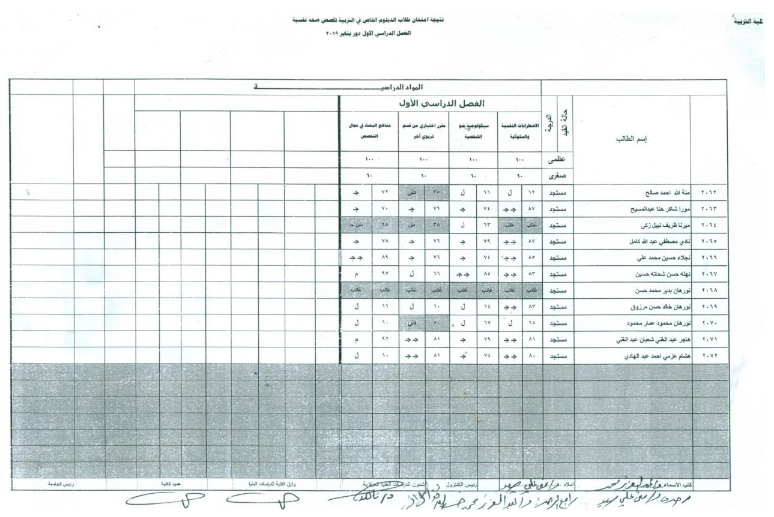 كلية التربية
نتيجة امتحان طلاب الدبلوم الخاص في التربية تخصص صحه نفسية
الفصل الدراسي الأول دور يناير ٢٠١٩
إسم الطالب حالة القيد الدرجة المواد الدراسيــة
الفصل الدراسي الأول
الاضطرابات النفسية والسلوكية سيكولوجية نمو الشخصية مقرر اختياري من قسم تربوي آخر مناهج البحث في مجال التخصص
عظمى ١٠٠ ١٠٠ ١٠٠ ١٠٠
صغرى ٦٠ ٦٠ ٦٠ ٦٠
٢٠٦٢ منة الله احمد صالح مستجد ٦٢ ل ٦٦ ل ض ٧٢ ج
٢٠٦٣ مورا شاكر حنا عبدالمسيح مستجد ٨٧ ج ج ٧٤ ج ٧٦ ج ٧٠ ج
٢٠٦٤ ميرنا ظريف نبيل زكى مستجد غائب غائب ٦٣ ل ٣٨ ض
٢٠٦٥ نادي مصطفي عبد الله كامل مستجد ٨٧ ج ج ٧٩ ج ٧٦ ج ٧٨ ج
٢٠٦٦ نجلاء حسين محمد علي مستجد ٨٥ ج ج ٧٤ ج ٧٦ ج ٨٩ ج ج
٢٠٦٧ نهله حسن شحاته حسين مستجد ٨٣ ج ج ٨٥ ج ج ٦٦ ل ٩٧ م
٢٠٦٨ نورهان بدير محمد حسن مستجد غائب غائب غائب غائب غائب غائب غائب غائب
٢٠٦٩ نورهان خالد حسن مرزوق مستجد ٨٣ ج ج ٦٤ ل ٦٠ ل ٦٦ ل
٢٠٧٠ نورهان محمود عمار محمود مستجد ٦٥ ل ٦٧ ل ٥٠ ض ٦٠ ل
٢٠٧١ هاجر عبد الغني شعبان عبد الغني مستجد ٨٦ ج ج ٧٩ ج ٨١ ج ج ٩٢ م
٢٠٧٢ هشام عزمي احمد عبد الهادي مستجد ٨٠ ج ج ٧٤ ج ٨١ ج ج ٦٠ ل
كتب الاسماء املاه رئيس الكنترول وكيل الكلية للدراسات العليا عميد الكلية رئيس الجامعة